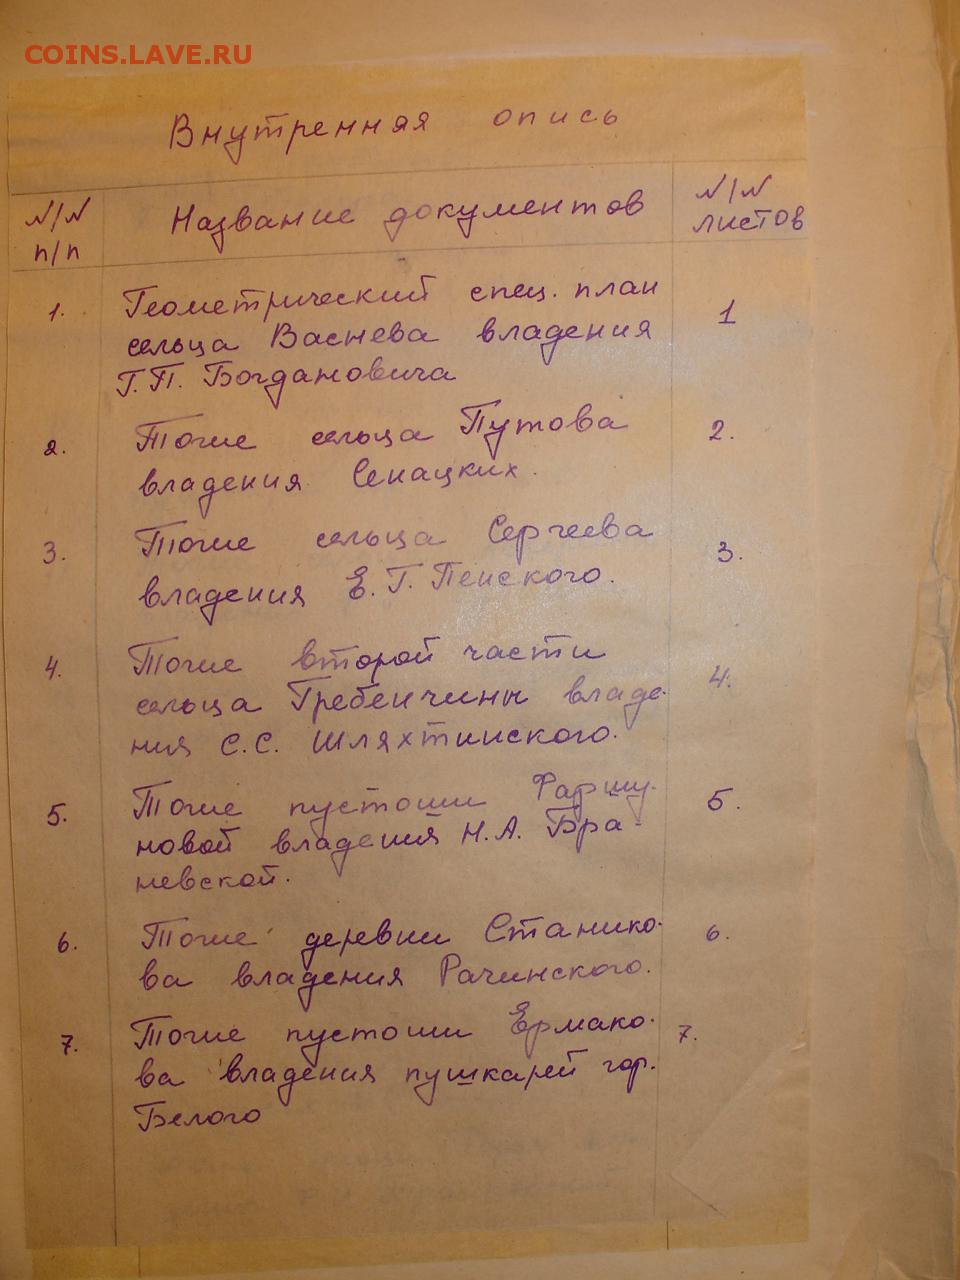 COINS.LAVE.RU
Внутренняя опись
N/N Название документов N/N
п/п листов
1. Геометрический спец. план 1
сельца Васнева владения
Г.П. Богдановича
2. Тоже сельца Путова 2.
владения Сенацких.
3. Тоже сельца Сергеева 3.
владения Е.Г. Пенского.
4. Тоже второй части 4.
сельца Гребенчины владе-
ния С.С. Шляхтинского.
5. Тоже пустоши Фаршу- 5.
новой владения Н.А. Бра-
невской.
6. Тоже деревни Станико- 6.
ва владения Рачинского.
7. Тоже пустоши Ермако- 7.
ва владения пушкарей гор.
Белого